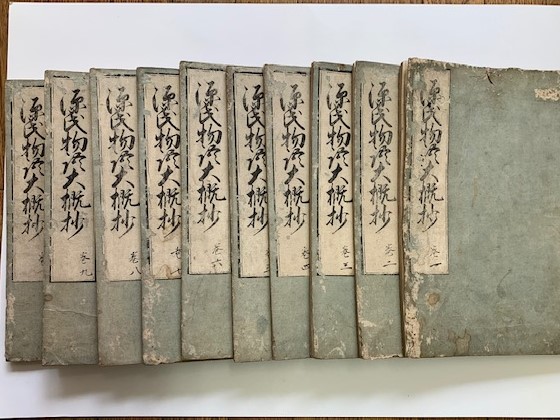 源氏物語大概抄 巻一
源氏物語大概抄 巻二
源氏物語大概抄 巻三
源氏物語大概抄 巻四
源氏物語大概抄
源氏物語大概抄 巻六
源氏物語大概抄 巻七
源氏物語大概抄 巻八
源氏物語大概抄 巻九
源氏物語大概抄